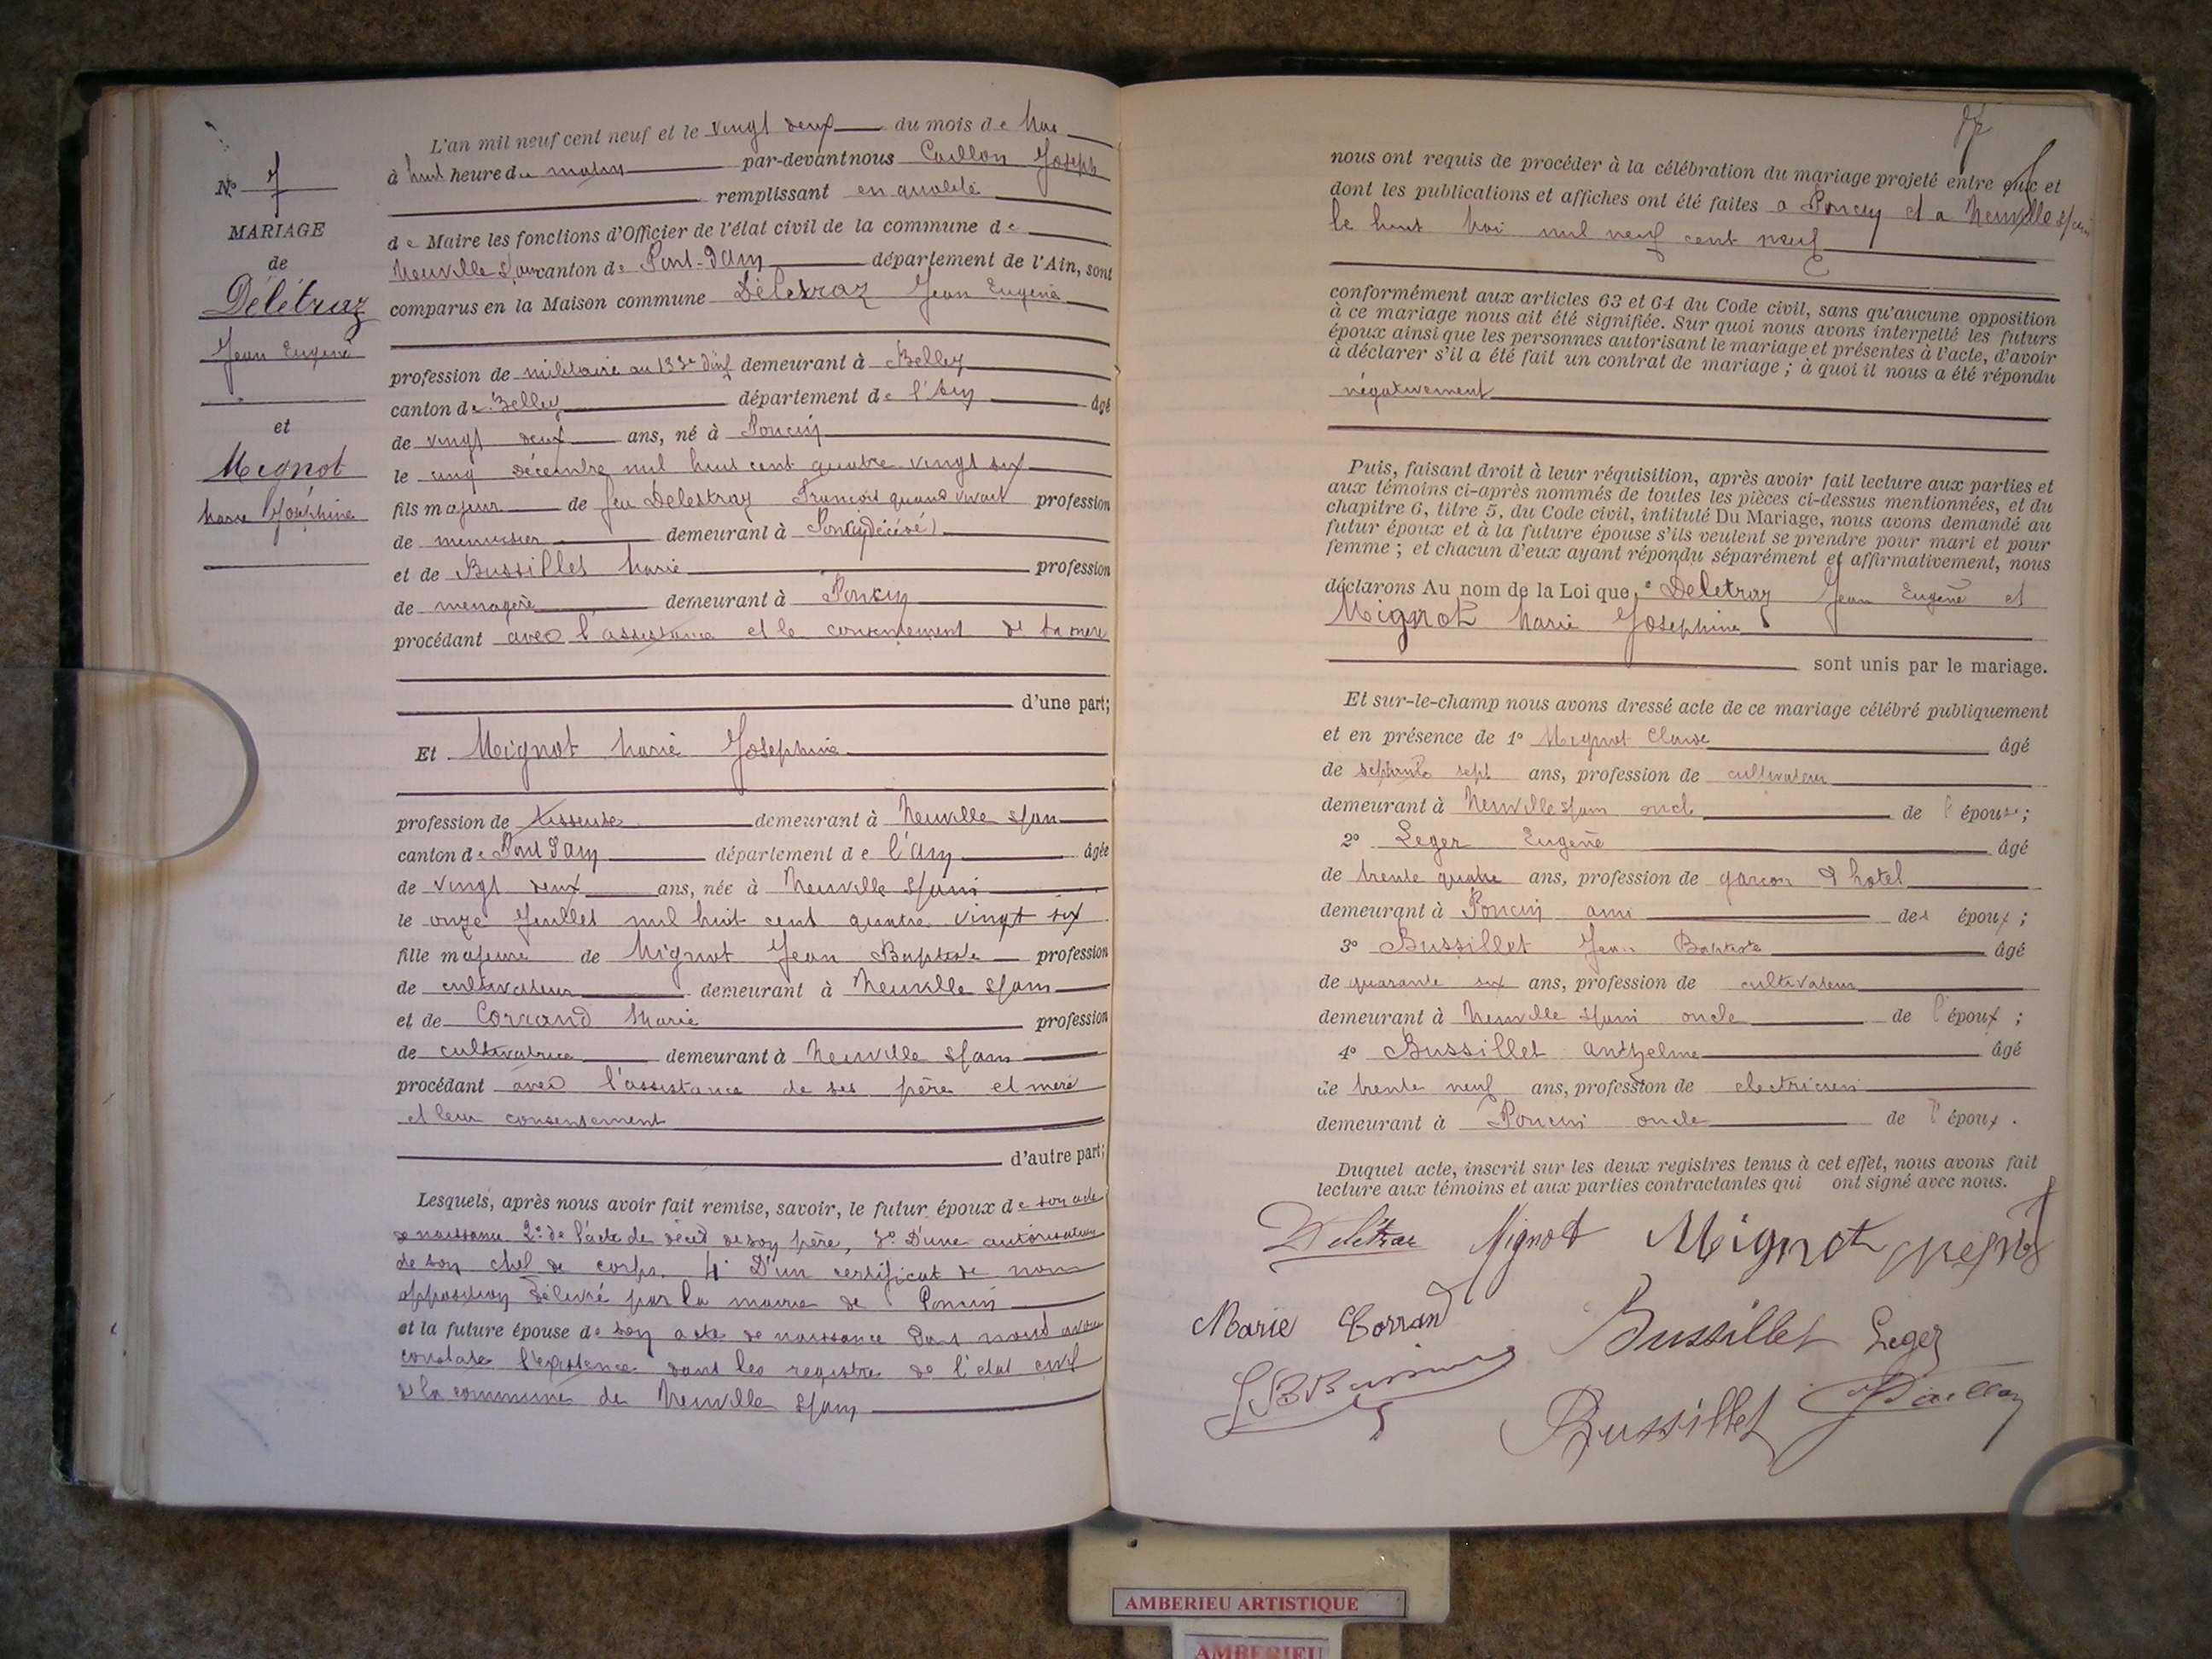 N° 7
MARIAGE
de
Délétraz
Jean Eugene
et
Mignot
Marie Joséphine
L'an mil neuf cent neuf et le vingt deux du mois de Mai
à huit heure du matin par-devant nous Caillon Joseph
remplissant en qualité
de Maire les fonctions d'Officier de l'état civil de la commune de
Neuville s/ain canton de Pont-d'Ain département de l'Ain, sont
comparus en la Maison commune Délétraz Jean Eugene
profession de militaire au 133e d'inf demeurant à Belley
canton de Belley département de l'Ain âgé
de vingt deux ans, né à Poncin
le cinq décembre mil huit cent quatre vingt six
fils majeur de feu Delestraz Francois quand vivait profession
de menuisier demeurant à Poncin (décédé)
et de Bussillet Marie profession
de menagère demeurant à Poncin
procédant avec l'assistance et le consentement de sa mere
d'une part;
Et Mignot Marie Josephine
profession de tisseuse demeurant à Neuville s/ain
canton de Pont d'Ain département de l'Ain âgée
de vingt deux ans, née à Neuville s/ain
le onze Juillet mil huit cent quatre vingt six
fille majeure de Mignot Jean Baptiste profession
de cultivateur demeurant à Neuville s/ain
et de Corrand Marie profession
de cultivatrice demeurant à Neuville s/ain
procédant avec l'assistance de ses père et mere
et leur consentement
d'autre part;
Lesquels, après nous avoir fait remise, savoir, le futur époux de son acte
de naissance 2° de l'acte de décès de son père, 3° D'une autorisation
de son chef de corps. 4° D'un certificat de non
opposition délivré par la mairie de Poncin
et la future épouse de son acte de naissance dont nous avons
constaté l'existence dans les registre de l'etat civil
de la commune de Neuville s/ain
nous ont requis de procéder à la célébration du mariage projeté entre eux et
dont les publications et affiches ont été faites a Poncin et a Neuville s/ain
le huit Mai mil neuf cent neuf
conformément aux articles 63 et 64 du Code civil, sans qu'aucune opposition
à ce mariage nous ait été signifiée. Sur quoi nous avons interpellé les futurs
époux ainsi que les personnes autorisant le mariage et présentes à l'acte, d'avoir
à déclarer s'il a été fait un contrat de mariage; à quoi il nous a été répondu
négativement
Puis, faisant droit à leur réquisition, après avoir fait lecture aux parties et
aux témoins ci-après nommés de toutes les pièces ci-dessus mentionnées, et du
chapitre 6, titre 5, du Code civil, intitulé Du Mariage, nous avons demandé au
futur époux et à la future épouse s'ils veulent se prendre pour mari et pour
femme; et chacun d'eux ayant répondu séparément et affirmativement, nous
déclarons Au nom de la Loi que Deletraz Jean Eugène et
Mignot Marie Josephine
sont unis par le mariage.
Et sur-le-champ nous avons dressé acte de ce mariage célébré publiquement
et en présence de 1° Mignot âgé
de sept ans, profession de cultivateur
demeurant à Neuville s/ain oncle de l'épouse;
2° Leger Eugène âgé
de trente quatre ans, profession de garcon d'hotel
demeurant à Poncin ami des époux;
3° Bussillet Jean Baptiste âgé
de quarante six ans, profession de cultivateur
demeurant à Neuville s/ain oncle de l'époux;
4° Bussillet Anthelme âgé
de trente neuf ans, profession de electricien
demeurant à Poncin oncle de l'époux.
Duquel acte, inscrit sur les deux registres tenus à cet effet, nous avons fait
lecture aux témoins et aux parties contractantes qui ont signé avec nous.
Delétraz Mignot Mignot
Marie Corrand Bussillet Leger
Bussillet JCaillon
AMBERIEU ARTISTIQUE
AMBERIEU